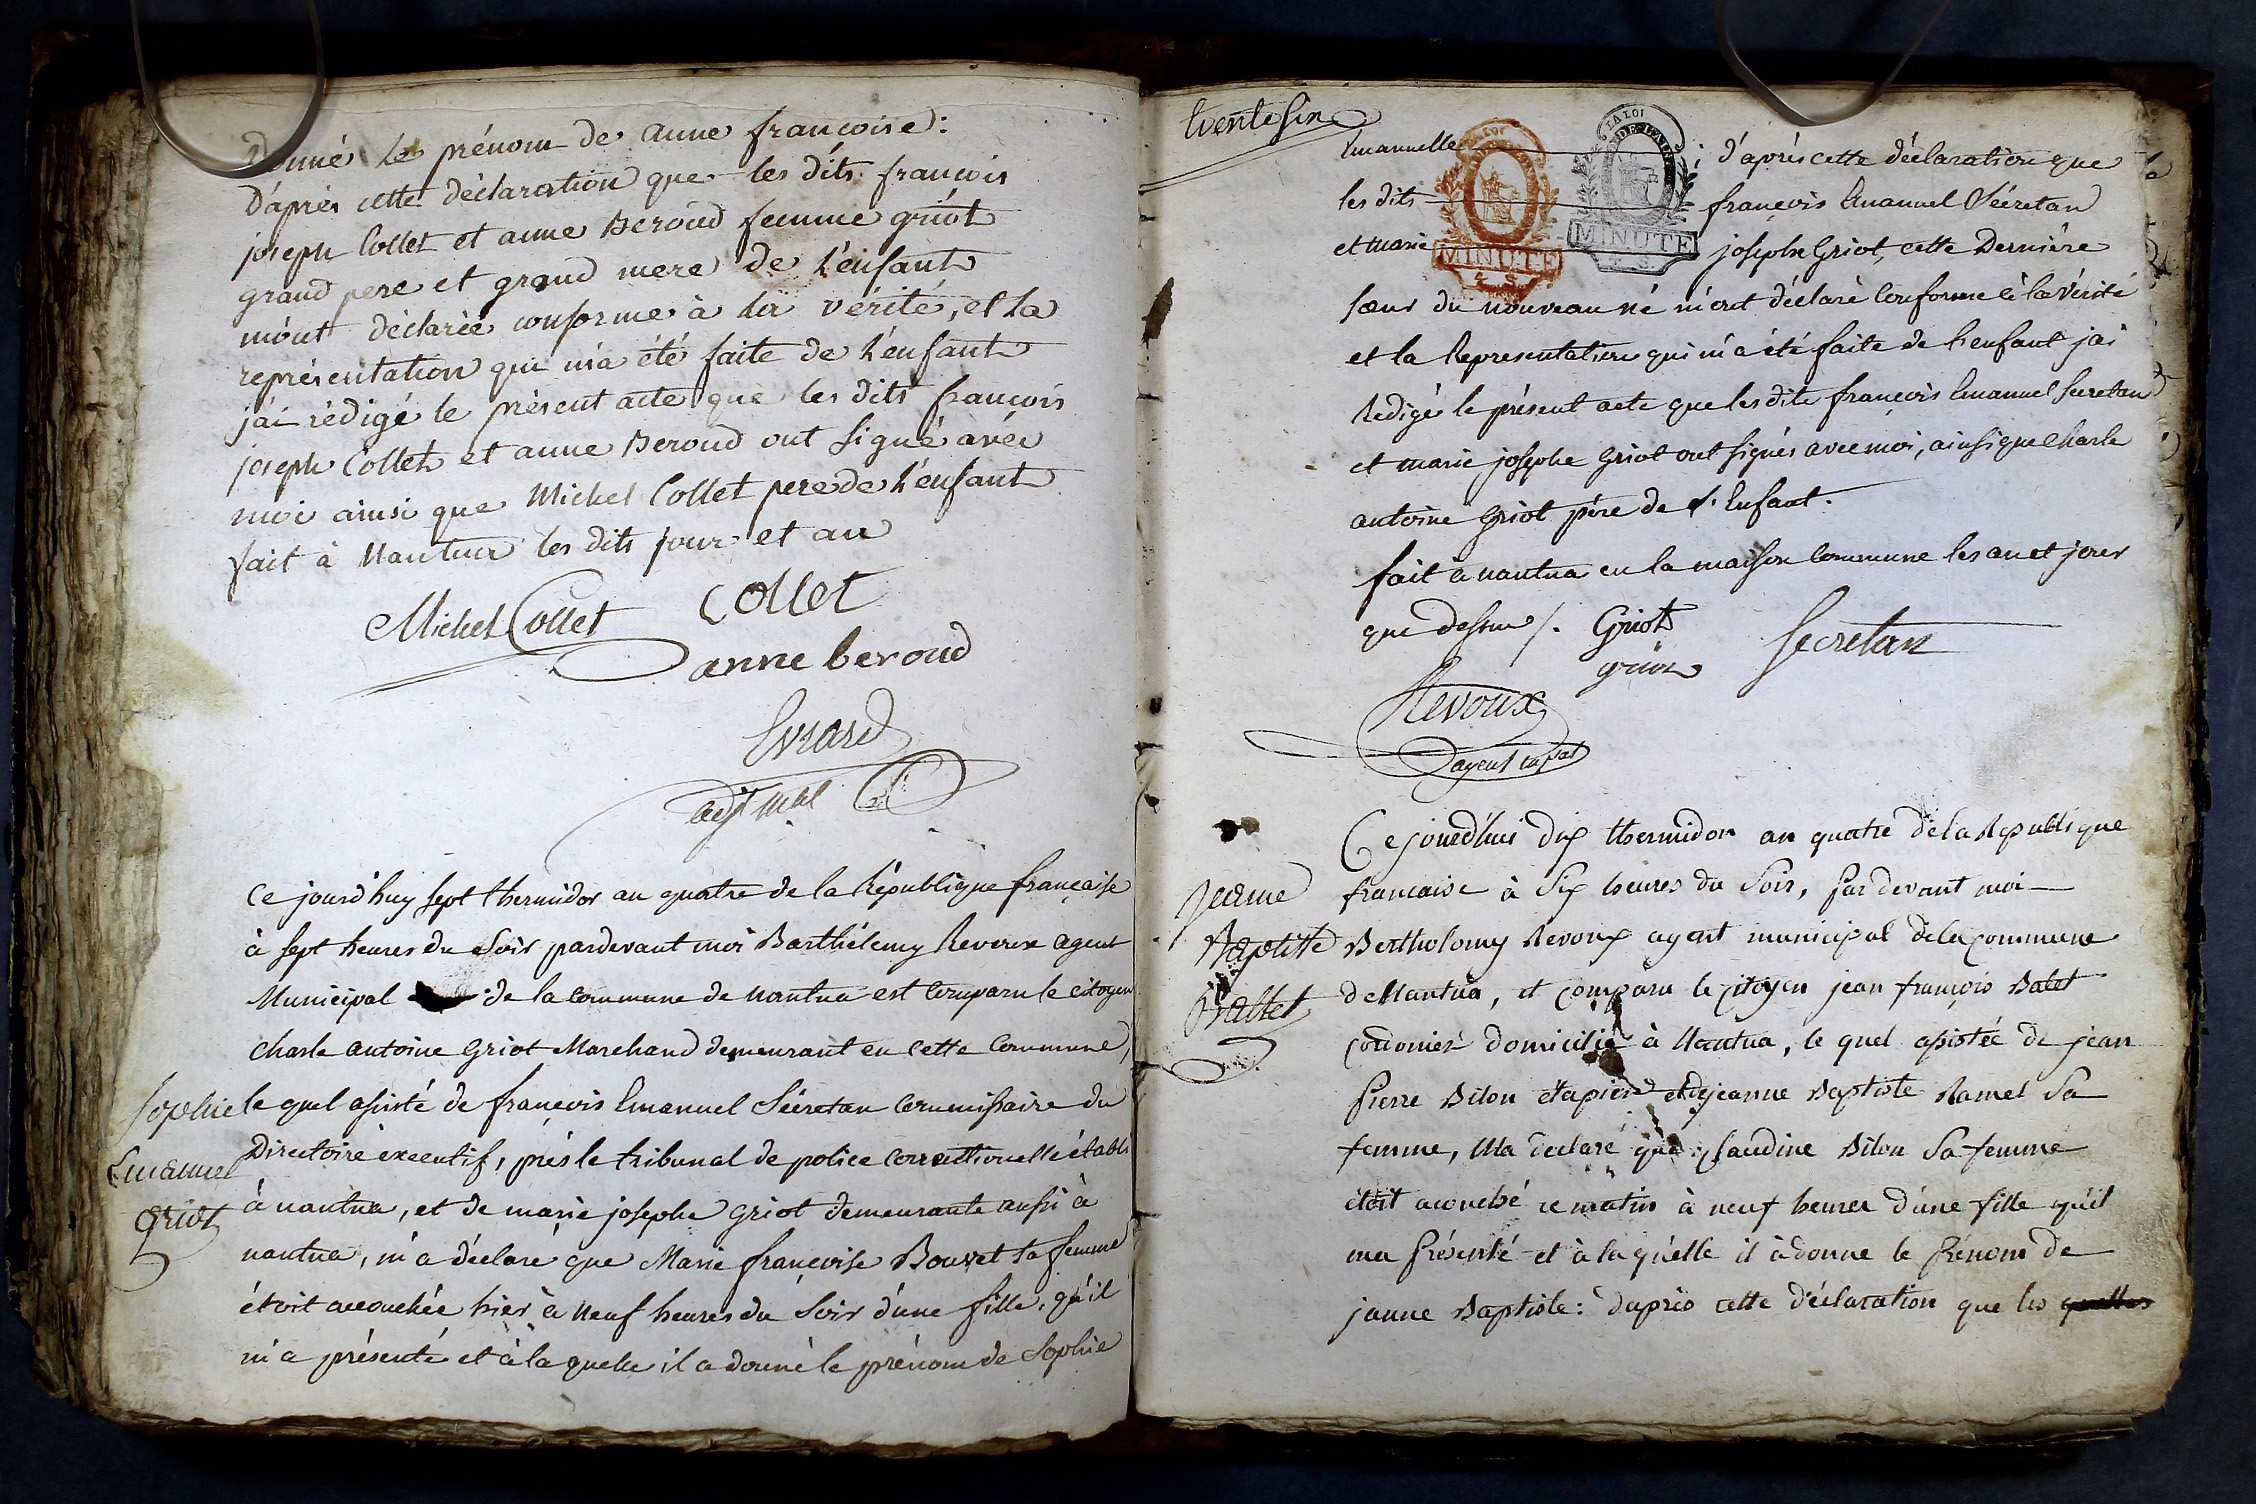 Donné le prénom de anne françoise:
D'après cette déclaration que les dits françois
joseph Collet et anne Beroud femme griot
grand pere et grand mere de l'enfant
m'ont déclarée conforme à la vérité, et la
représentation qui m'a été faite de l'enfant
j'ai rédigé le présent acte que les dits françois
joseph Collet et anne Beroud ont signé avec
moi ainsi que Michel Collet pere de l'enfant
fait à Nantua les dits jour et an
Michel Collet Collet
anne beroud
Evrard
adjt mal
Ce jourd'huy sept thermidor an quatre de la République française
à sept heures du Soir pardevant moi Barthélemy Revoux agent
Municipal de la commune de nantua est comparu le citoyen
Charle antoine Griot Marchand demeurant en cette Commune,
Sophie
Emanuel
Griot
le quel assisté de françois Emanuel Sécretan commissaire du
Directoire executif, près le tribunal de police correctionelle établi
à nantua, et de marie josephe Griot demeurante aussi à
nantua, m'a déclaré que Marie françoise Bouvet sa femme
étoit accouchée hier à neuf heures du Soir d'une fille, qu'il
m'a présenté et à la quelle il a donné le prénom de Sophie
trente six
LA LOI
MINUTE
LA LOI
MINUTE
Emanuelle ; d'après cette déclaration que
les dits françois Emanuel Sécretan
et marie josephe Griot, cette Dernière
sœur du nouveau né m'ont déclaré Conforme à la Vérité
et la Representation qui m'a été faite de l'enfant jai
Redigé le présent acte que les dits françois Emanuel Secretan
et marie josephe Griot ont signés avec moi, ainsi que Charle
antoine Griot père de l'Enfant.
fait à nantua en la maison Commune les an et jour
que dessus /. Griot Secretan
griot
Revoux
agent mpal
Ce jourd'hui dix thermidor an quatre de la Republique
Jeanne
Baptiste
Ballet
francaise à Six heures du Soir, par devant moi
Bertholomy Revoux agent municipal de la commune
de Nantua, et comparu le citoyen jean françois Balet
cordonier domicilié à Nantua, le quel assistée de jean
Pierre Bilon etapier et de jeanne Baptiste Ramel Sa
femme, Ma declaré que Claudine Bilon Sa femme
étoit acouché ce matin à neuf heures d'une fille qu'il
ma Présenté et à la quelle il à donne le Prénom de
janne Baptiste: daprès cette déclaration que les quelles